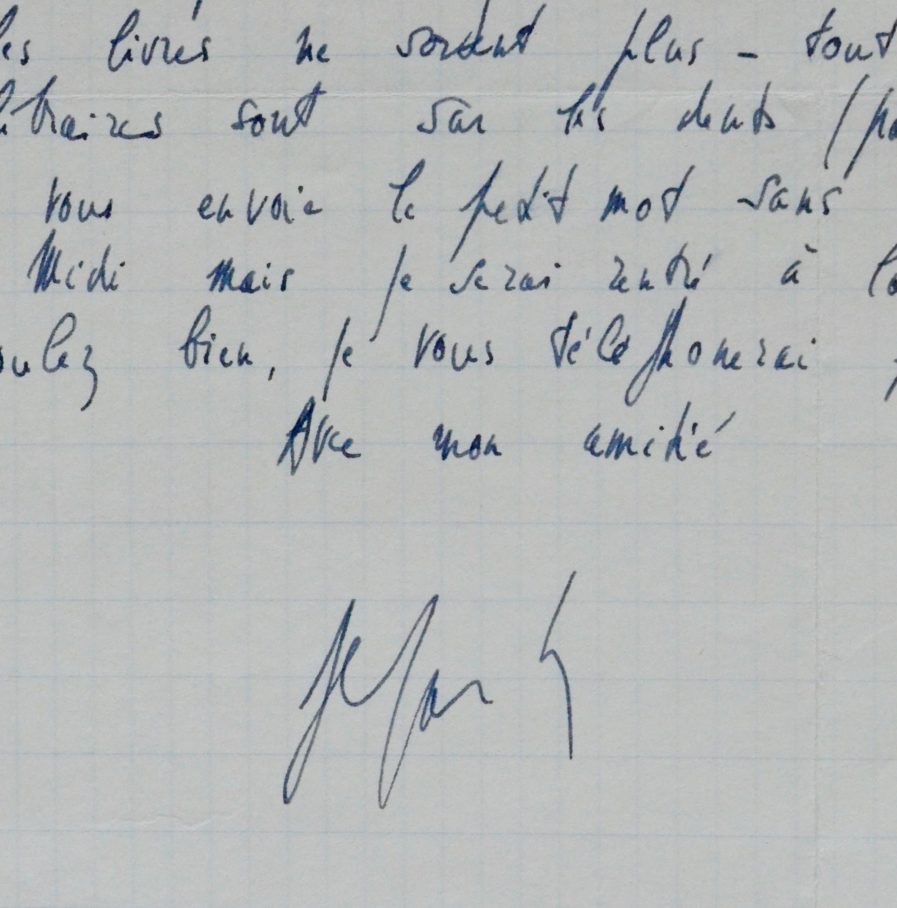 les livres ne sortent plus - tout
libraires sont sur les dents (pa
vous envoie le petit mot sans
Midi mais je serai rentré à la
oulez bien, je vous téléphonerai
Avec mon amitié